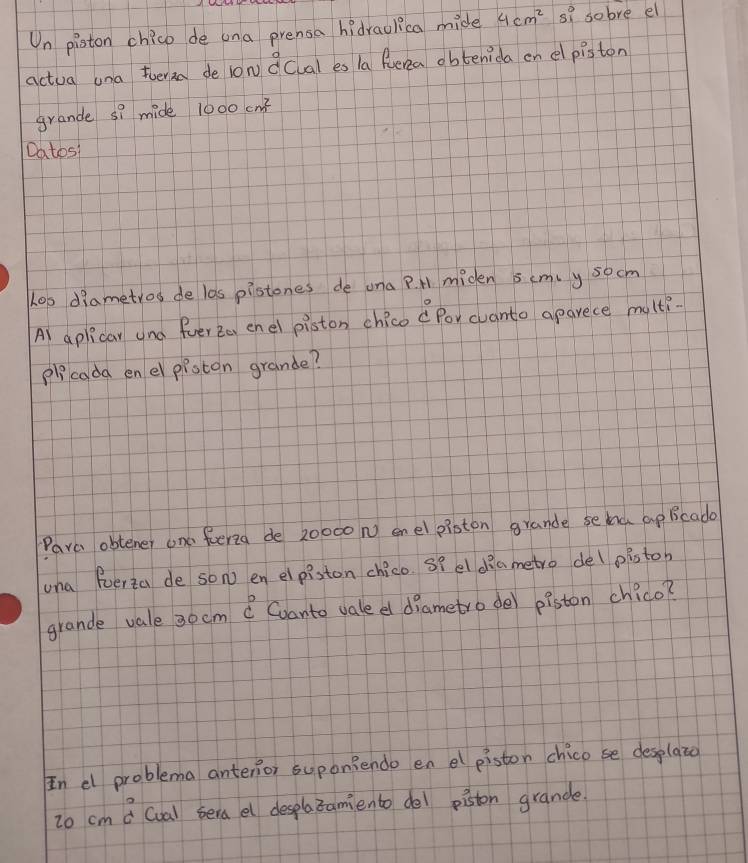 Un piston chico de una prensa hidraulica mide 4cm² si sobre el
actua una fuerza de 10N ¿Cual es la fuerza obtenida en el piston
grande si mide 1000 cm²
Datos:
Los diametros de los pistones de una P.H miden 5cm. y 50cm
Al aplicar una fuerza en el piston chico ¿Por cuanto aparece multi-
plicada en el piston grande?
Para obtener una fuerza de 20000N en el piston grande se ha aplicado
una fuerza de 50N en el piston chico. Si el diametro del piston
grande vale 30cm ¿Cuanto vale el diametro del piston chico?
En el problema anterior suponiendo en el piston chico se desplazo
20 cm ¿Cual sera el desplazamiento del piston grande.